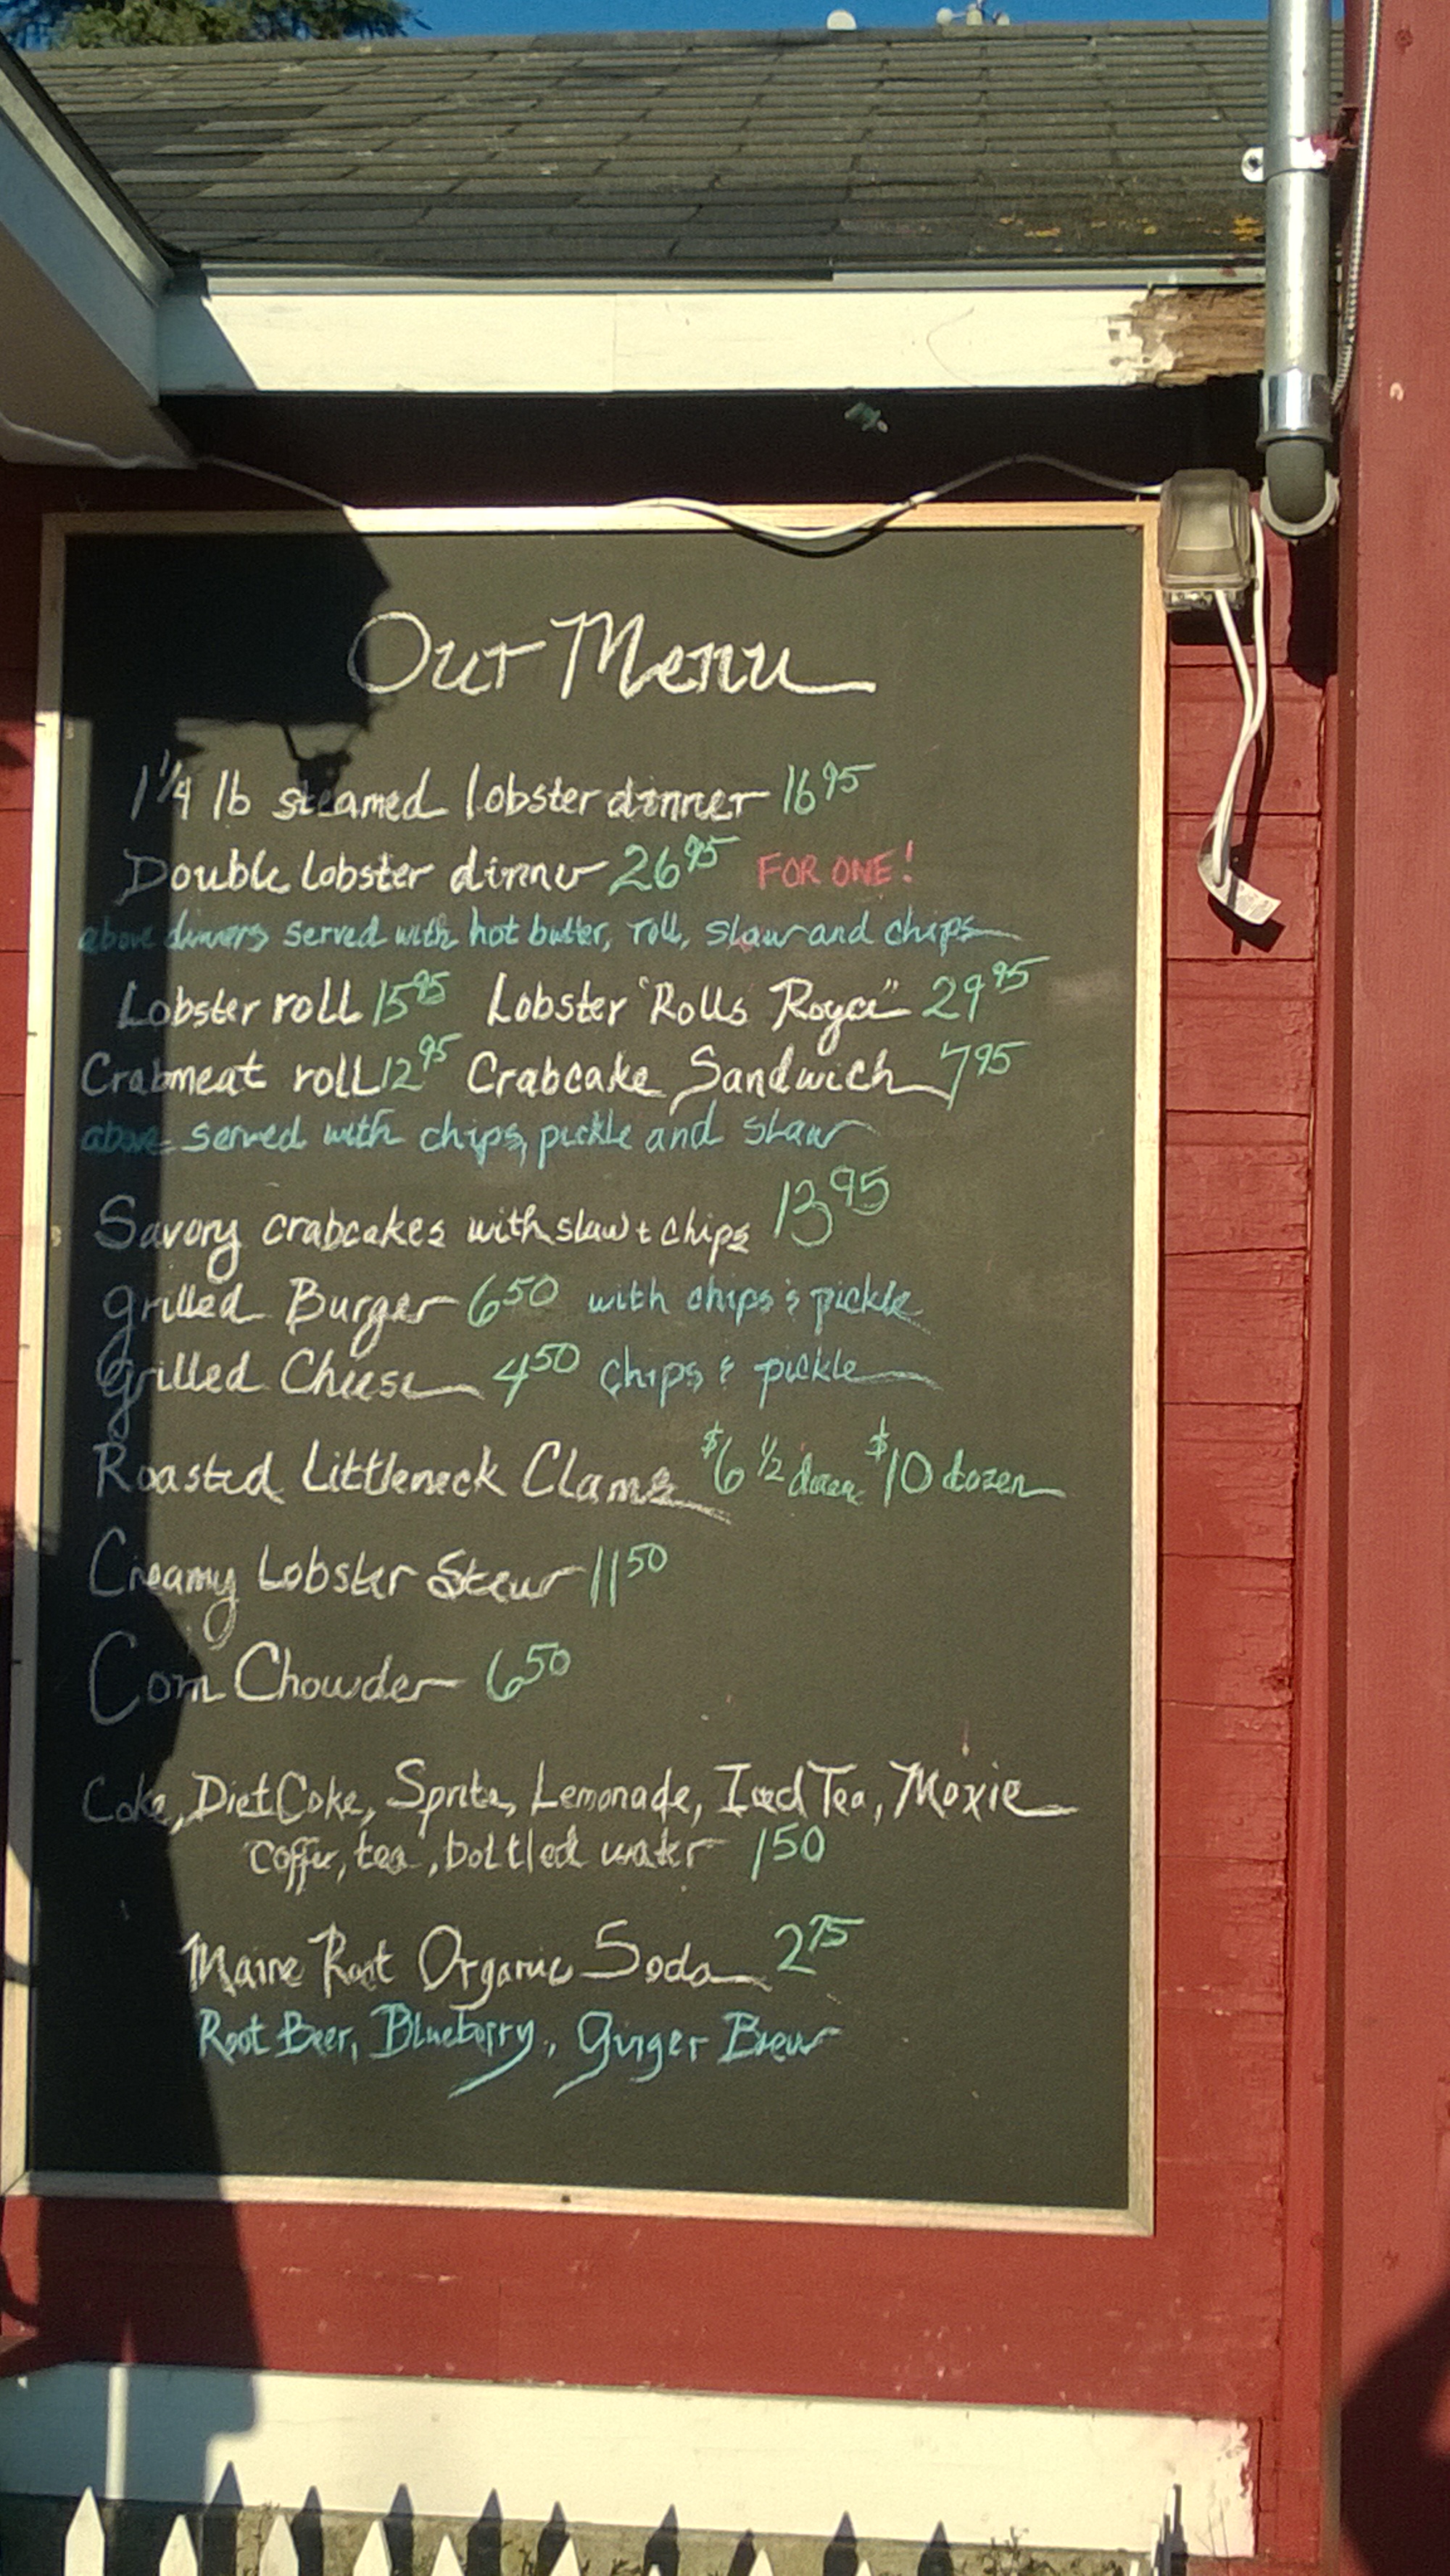 Our Menu
1 1/4 lb steamed lobster dinner 16 95
Double lobster dinner 26 95 FOR ONE!
above dinners served with hot butter, roll, slaw and chips
Lobster roll 15 95 Lobster "Rolls Royce" 29 95
Crabmeat roll 12 95 Crabcake Sandwich 7 95
above served with chips, pickle and slaw
Savory crabcakes with slaw + chips 13 95
Grilled Burger 6 50 with chips & pickle
Grilled Cheese 4 50 chips & pickle
Roasted Littleneck Clams $6 1/2 dozen $10 dozen
Creamy Lobster Stew 11 50
Corn Chowder 6 50
Coke, Diet Coke, Sprite, Lemonade, Iced Tea, Moxie
coffee, tea, bottled water 1 50
Maine Root Organic Soda 2 75
Root Beer, Blueberry, Ginger Brew